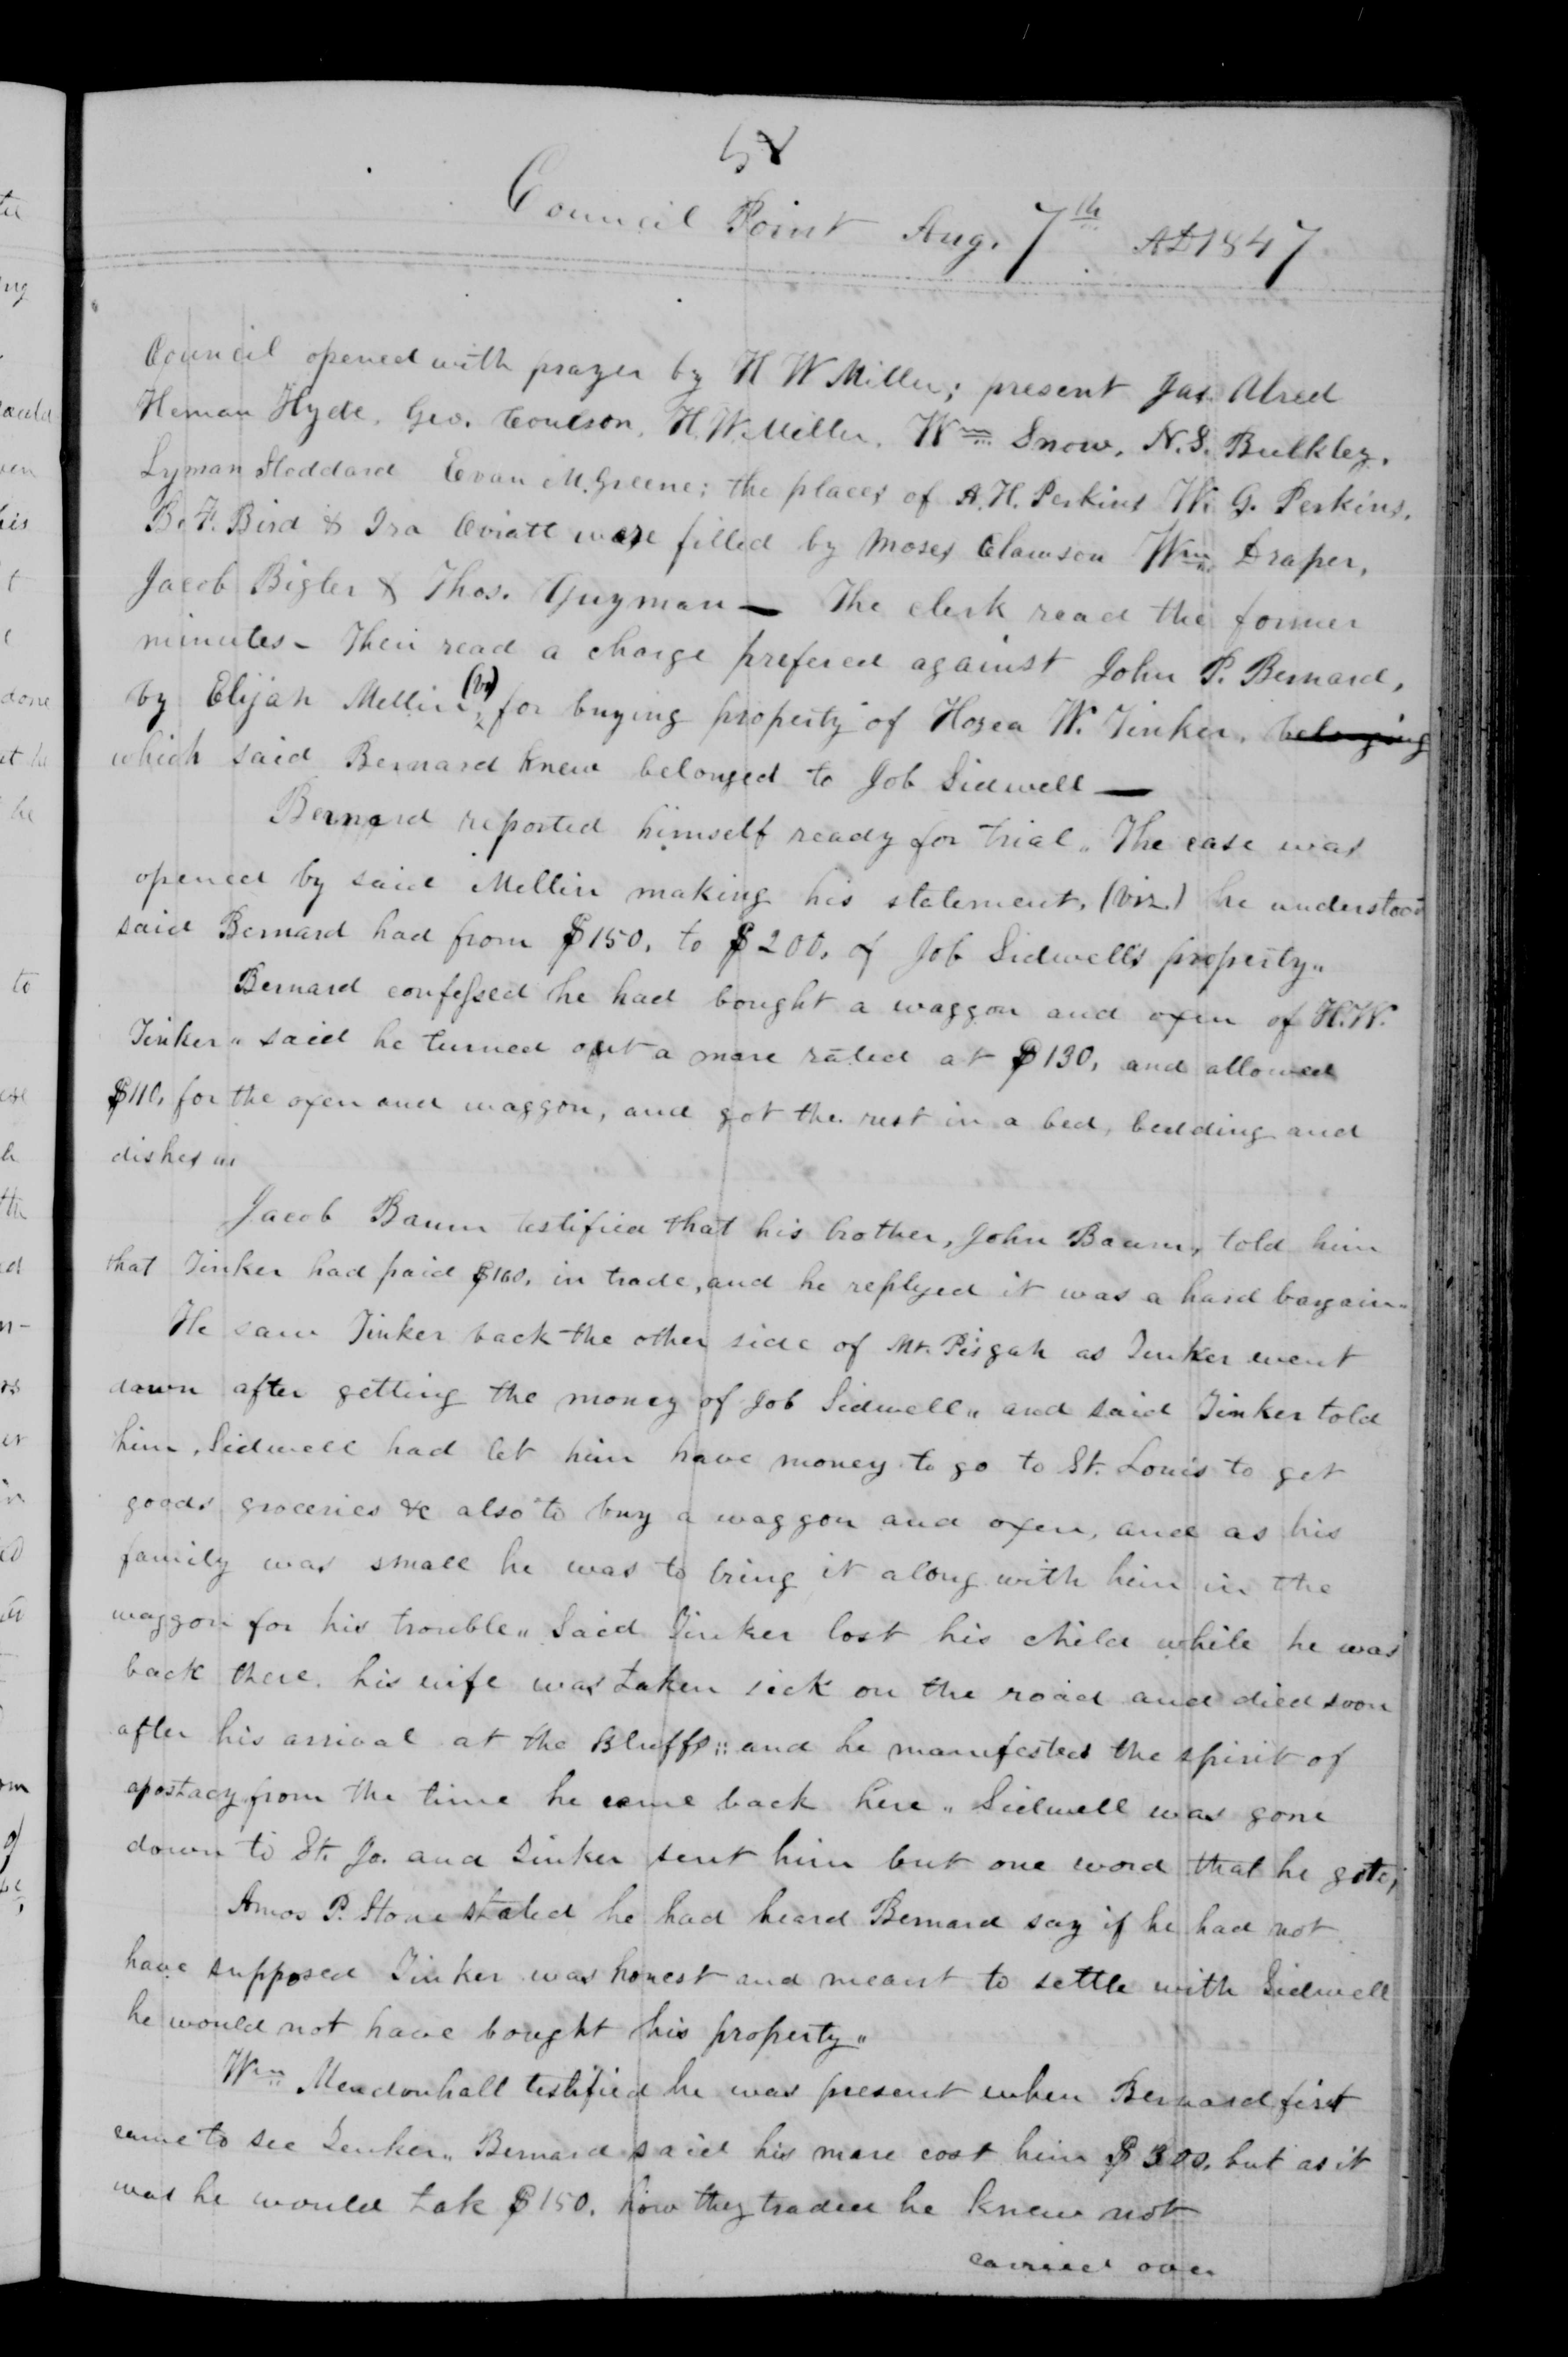 Council Point Aug. 7th AD 1847
Council opened with prayer by H W Miller; present Jas. Alred
Heman Hyde, Geo. Coulson, H. W. Miller, Wm Snow, N. S. Bulkley,
Lyman Stoddard Evan M. Greene; the places of A. H. Perkins W. G. Perkins,
B. F. Bird & Ira Oviatt ware filled by Moses Clawson Wm Draper,
Jacob Bigler & Thos. Guyman — The clerk read the former
minutes - Then read a charge prefered against John P. Bernard,
by Elijah Mellin (viz) for buying property of Hozea W. Tinker, belonging
which said Bernard knew belonged to Job Sidwell —
Bernard reported himself ready for trial „ The case was
opened by said Mellin making his statement, (viz.) he understood
said Bernard had from $150, to $200, of Job Sidwell's property„
Bernard confessed he had bought a waggon and oxen of H. W.
Tinker „ said he turned out a mare rated at $130, and allowed
$110, for the oxen and waggon, and got the rest in a bed, bedding and
dishes „
Jacob Baum testified that his brother, John Baum, told him
that Tinker had paid $160, in trade, and he replyed it was a hard bargain„
He saw Tinker back the other side of Mt. Pisgah as Tinker went
down after getting the money of Job Sidwell „ and said Tinker told
him, Sidwell had let him have money to go to St. Louis to get
goods groceries &c also to buy a waggon and oxen, and as his
family was small he was to bring it along with him in the
waggon for his trouble „ Said Tinker lost his child while he was
back there, his wife was taken sick on the road and died soon
after his arrival at the Bluffs; and he manifested the spirit of
apostacy from the time he came back here „ Sidwell was gone
down to St. Jo. and Tinker sent him but one word that he gote;
Amos P. Stone stated he had heard Bernard say if he had not
have supposed Tinker was honest and meant to settle with Sidwell
he would not have bought his property „
Wm Mendonhall testified he was present when Bernard first
came to see Tenker „ Bernard said his mare cost him $300, but as it
was he would tak $150. how they traded he knew not
carried over